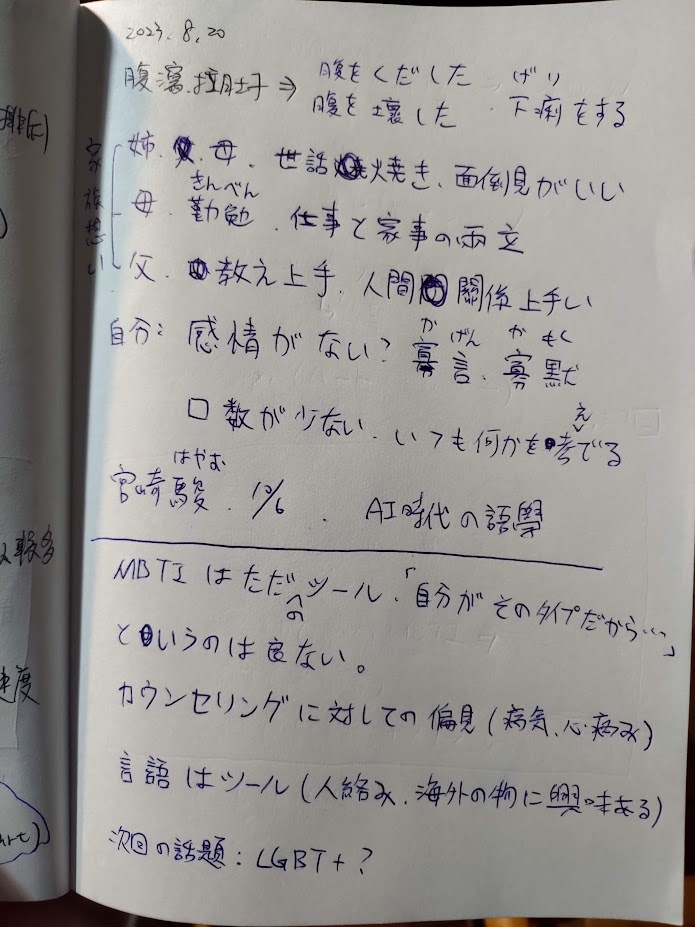 2023.8.20
腹瀉.拉肚子⇒ 腹をくだした げり
腹を壊した ・下痢をする
家族想い
姉. 母. 世話焼き、面倒見がいい
きんべん
母. 勤勉. 仕事と家事の両立
父. 教え上手. 人間關係上手い
か げん か もく
自分: 感情がない? 寡言、寡黙
口数が少ない. いつも何かを考でる
え
はやお
宮崎駿. 10/6. AI時代の語學
MBTIはただのツール.「自分がそのタイプだから…」
というのは良ない。
カウンセリングに対しての偏見(病気、心病み)
言語はツール(人絡み、海外の物に興味ある)
次回の話題: LGBT+?
速度